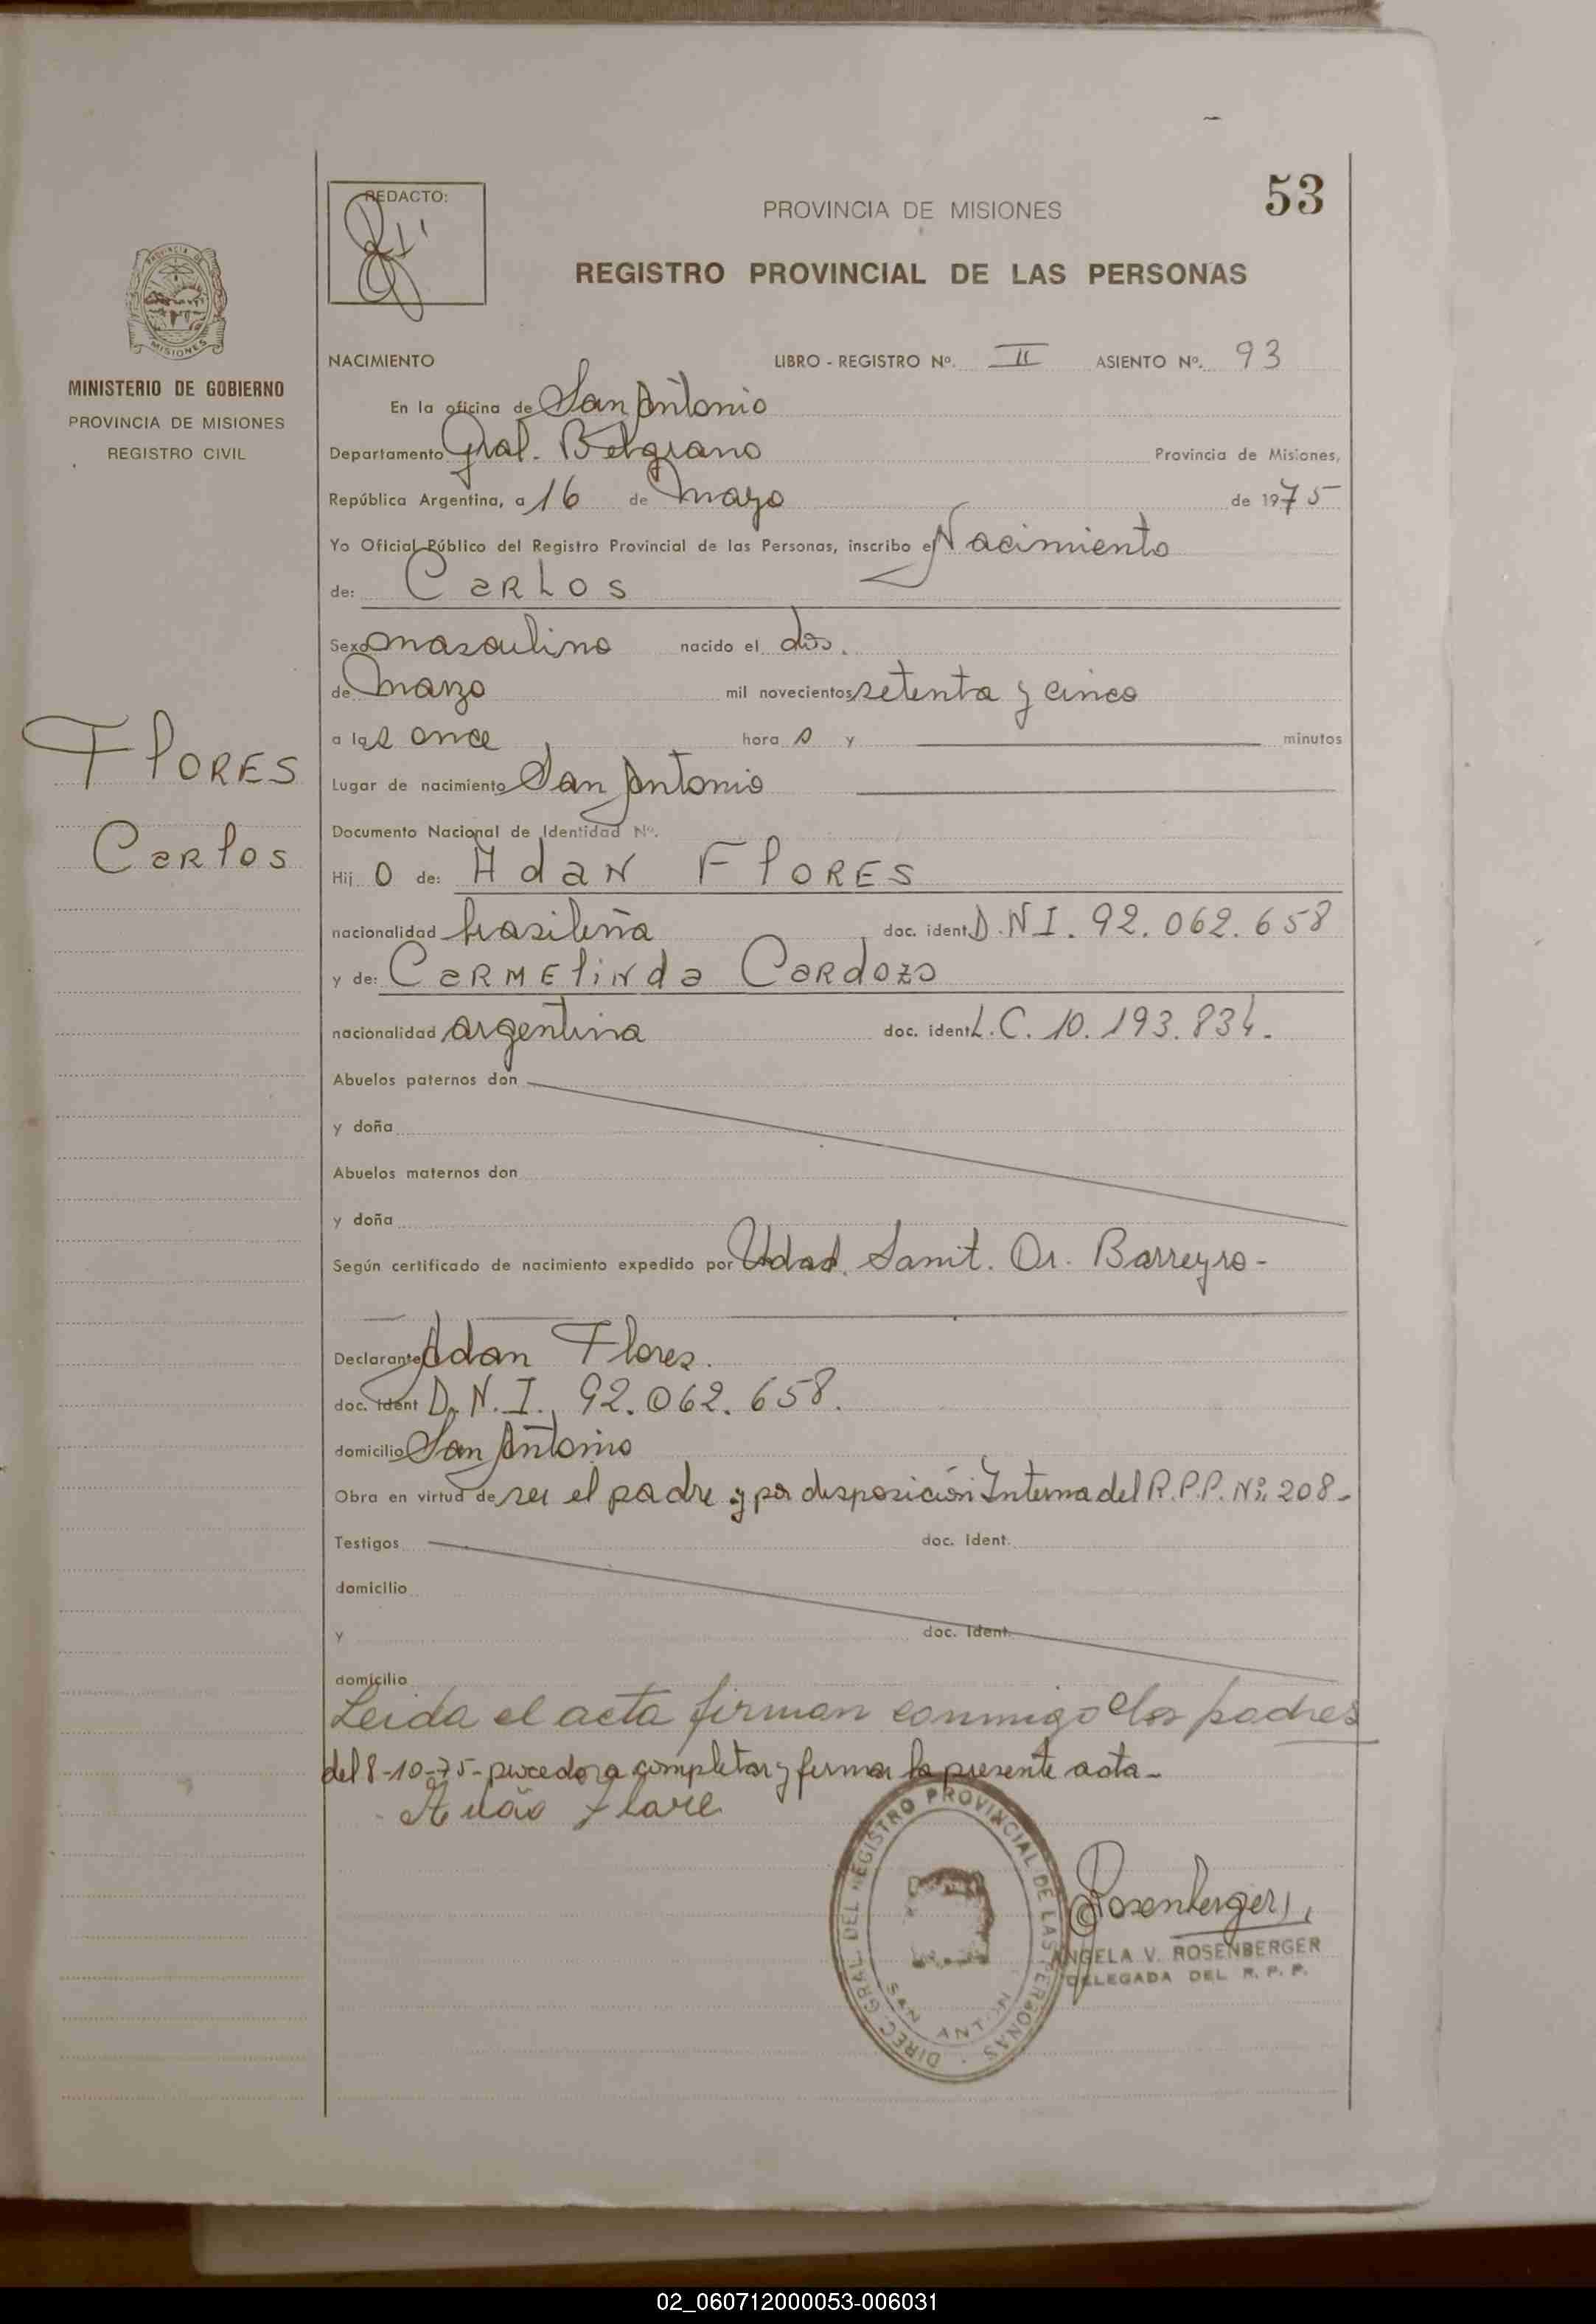 53
REDACTO:
PROVINCIA DE MISIONES
REGISTRO PROVINCIAL DE LAS PERSONAS
PROVINCIA DE
MISIONES
MINISTERIO DE GOBIERNO
PROVINCIA DE MISIONES
REGISTRO CIVIL
NACIMIENTO LIBRO - REGISTRO Nº. II ASIENTO Nº. 93
En la oficina de San Antonio
Departamento Gral. Belgrano Provincia de Misiones,
República Argentina, a 16 de Mayo de 1975
Yo Oficial Público del Registro Provincial de las Personas, inscribo el Nacimiento
de: Carlos
Sexo masculino nacido el dos.
de marzo mil novecientos setenta y cinco
a las once hora s y minutos
FLORES
Carlos
Lugar de nacimiento San Antonio
Documento Nacional de Identidad Nº.
Hij o de: Adan FLORES
nacionalidad brasileña doc. ident. D.N.I. 92.062.658
y de: Carmelinda Cardozo
nacionalidad argentina doc. ident. L.C. 10.193.834.
Abuelos paternos don
y doña
Abuelos maternos don
y doña
Según certificado de nacimiento expedido por Udad. Sanit. Dr. Barreyro-
Declarante Adan Flores.
doc. ident D.N.I. 92.062.658.
domicilio San Antonio
Obra en virtud de ser el padre y por disposición Interna del R.P.P. Nº 208-
Testigos doc. ident.
domicilio
y doc. ident.
domicilio
Leida el acta firman conmigo los padres
del 8-10-75- procedo a completar y firmar la presente acta-
DIREC. GRAL. DEL REGISTRO PROVINCIAL DE LAS PERSONAS
SAN ANTON
Rosenberger
ANGELA V. ROSENBERGER
DELEGADA DEL R. P. P.
02_060712000053-006031